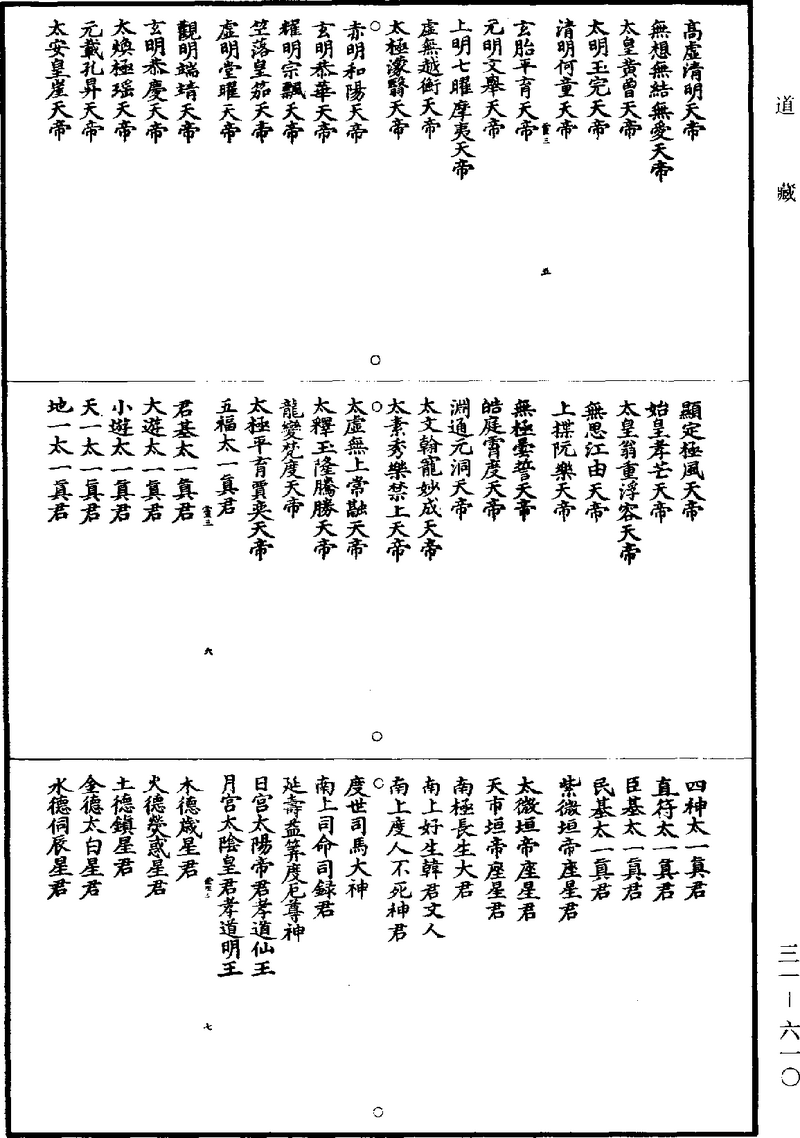 道藏
高虛清明天帝
無想無結無愛天帝
太皇黃曾天帝
太明玉完天帝
清明何童天帝
玄胎平育天帝
元明文舉天帝
上明七曜摩夷天帝
虛無越衡天帝
太極濛翳天帝
赤明和陽天帝
玄明恭華天帝
耀明宗飄天帝
竺落皇笳天帝
虛明堂曜天帝
觀明端靖天帝
玄明恭慶天帝
太煥極瑤天帝
元載孔昇天帝
太安皇崖天帝
五
顯定極風天帝
始皇孝芒天帝
太皇翁重浮容天帝
無思江由天帝
上揲阮樂天帝
無極曇誓天帝
皓庭霄度天帝
淵通元洞天帝
太文翰寵妙成天帝
太素秀樂禁上天帝
太虛無上常融天帝
太釋玉隆騰勝天帝
龍變梵度天帝
太極平育賈奕天帝
五福太一真君
君基太一真君
大遊太一真君
小遊太一真君
天一太一真君
地一太一真君
六
四神太一真君
直符太一真君
臣基太一真君
民基太一真君
紫微垣帝座星君
太微垣帝座星君
天市垣帝座星君
南極長生大君
南上好生韓君丈人
南上度人不死神君
度世司馬大神
南上司命司録君
延壽益筭度厄尊神
日宮太陽帝君孝道仙王
月宮太陰皇君孝道明王
木德歲星君
火德熒惑星君
土德鎮星君
金德太白星君
水德伺辰星君
七
三一－六一〇